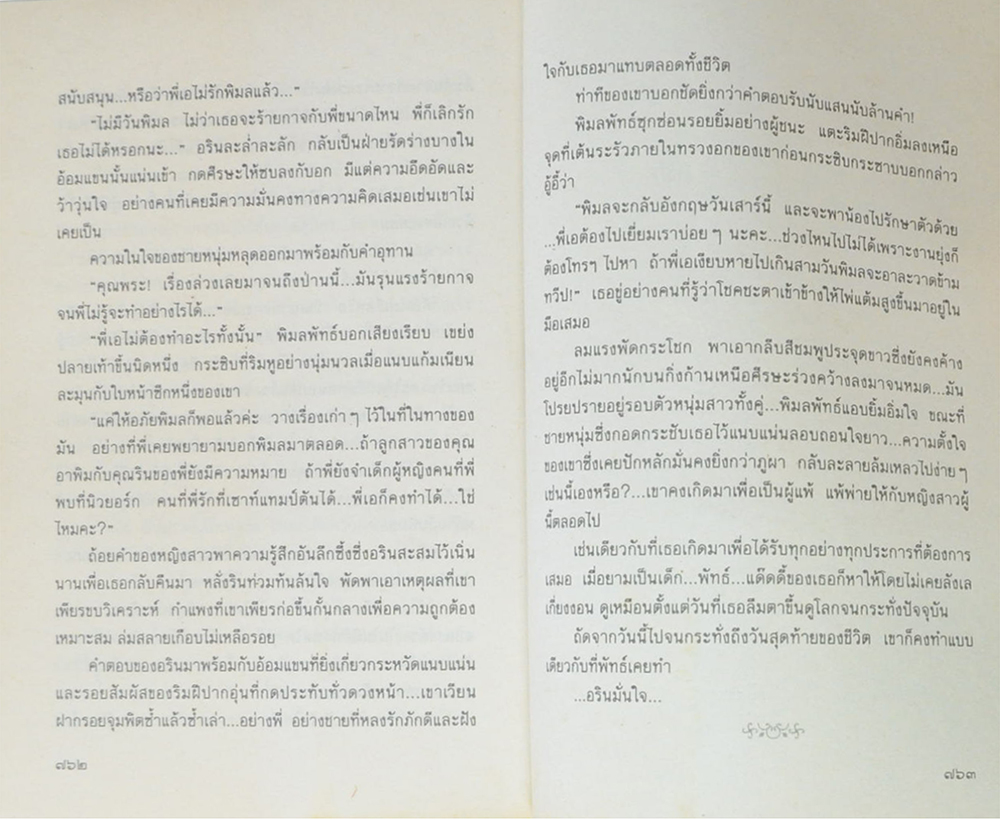 สนับสนุน...หรือว่าพี่เอไม่รักพิมลแล้ว..."
"ไม่มีวันพิมล ไม่ว่าเธอจะร้ายกาจกับพี่ขนาดไหน พี่ก็เลิกรัก
เธอไม่ได้หรอกนะ..." อรินละล่ำละลัก กลับเป็นฝ่ายรัดร่างบางใน
อ้อมแขนนั้นแน่นเข้า กดศีรษะให้ซบลงกับอก มีแต่ความอึดอัดและ
ว้าวุ่นใจ อย่างคนที่เคยมีความมั่นคงทางความคิดเสมอเช่นเขาไม่
เคยเป็น
ความในใจของชายหนุ่มหลุดออกมาพร้อมกับคำอุทาน
"คุณพระ! เรื่องล่วงเลยมาจนถึงป่านนี้...มันรุนแรงร้ายกาจ
จนพี่ไม่รู้จะทำอย่างไรได้..."
"พี่เอไม่ต้องทำอะไรทั้งนั้น" พิมลพัทธ์บอกเสียงเรียบ เขย่ง
ปลายเท้าขึ้นนิดหนึ่ง กระซิบที่ริมหูอย่างนุ่มนวลเมื่อแนบแก้มเนียน
ละมุนกับใบหน้าซีกหนึ่งของเขา
"แค่ให้อภัยพิมลก็พอแล้วค่ะ วางเรื่องเก่าๆ ไว้ในที่ในทางของ
มัน อย่างที่พี่เคยพยายามบอกพิมลมาตลอด...ถ้าลูกสาวของคุณ
อาพิมกับคุณรินของพี่ยังมีความหมาย ถ้าพี่ยังจำเด็กผู้หญิงคนที่พี่
พบที่นิวยอร์ก คนที่พี่รักที่เซาท์แทมป์ตันได้...พี่เอก็คงทำได้...ใช่
ไหมคะ?"
ถ้อยคำของหญิงสาวพาความรู้สึกอันลึกซึ้งซึ่งอรินสะสมไว้เนิ่น
นานเพื่อเธอกลับคืนมา หลั่งรินท่วมท้นล้นใจ พัดพาเอาเหตุผลที่เขา
เพียรขบวิเคราะห์ กำแพงที่เขาเพียรก่อขึ้นกั้นกลางเพื่อความถูกต้อง
เหมาะสม ล่มสลายเกือบไม่เหลือรอย
คำตอบของอรินมาพร้อมกับอ้อมแขนที่ยิ่งเกี่ยวกระหวัดแนบแน่น
และรอยสัมผัสของริมฝีปากอุ่นที่กดประทับทั่วดวงหน้า...เขาเวียน
ฝากรอยจุมพิตซ้ำแล้วซ้ำเล่า...อย่างพี่ อย่างชายที่หลงรักภักดีและฝัง
๗๖๒
ใจกับเธอมาแทบตลอดทั้งชีวิต
ท่าทีของเขาบอกชัดยิ่งกว่าคำตอบรับนับแสนนับล้านคำ!
พิมลพัทธ์ซุกซ่อนรอยยิ้มอย่างผู้ชนะ แตะริมฝีปากอิ่มลงเหนือ
จุดที่เต้นระรัวภายในทรวงอกของเขาก่อนกระซิบกระซาบบอกกล่าว
อู้อี้ว่า
"พิมลจะกลับอังกฤษวันเสาร์นี้ และจะพาน้องไปรักษาตัวด้วย
...พี่เอต้องไปเยี่ยมเราบ่อยๆ นะคะ...ช่วงไหนไปไม่ได้เพราะงานยุ่งก็
ต้องโทรฯ ไปหา ถ้าพี่เอเงียบหายไปเกินสามวันพิมลจะอาละวาดข้าม
ทวีป!" เธอขู่อย่างคนที่รู้ว่าโชคชะตาเข้าข้างให้ไพ่แต้มสูงขึ้นมาอยู่ใน
มือเสมอ
ลมแรงพัดกระโชก พาเอากลีบสีชมพูประจุดขาวซึ่งยังคงค้าง
อยู่อีกไม่มากนักบนกิ่งก้านเหนือศีรษะร่วงคว้างลงมาจนหมด...มัน
โปรยปรายอยู่รอบตัวหนุ่มสาวทั้งคู่...พิมลพัทธ์แอบยิ้มอิ่มใจ ขณะที่
ชายหนุ่มซึ่งกอดกระชับเธอไว้แนบแน่นลอบถอนใจยาว...ความตั้งใจ
ของเขาซึ่งเคยปักหลักมั่นคงยิ่งกว่าภูผา กลับละลายล้มเหลวไปง่ายๆ
เช่นนี้เองหรือ?...เขาคงเกิดมาเพื่อเป็นผู้แพ้ แพ้พ่ายให้กับหญิงสาวผู้
นี้ตลอดไป
เช่นเดียวกับที่เธอเกิดมาเพื่อได้รับทุกอย่างทุกประการที่ต้องการ
เสมอ เมื่อยามเป็นเด็ก...พัทธ์...แด๊ดดี้ของเธอก็หาให้โดยไม่เคยลังเล
เกี่ยงงอน ดูเหมือนตั้งแต่วันที่เธอลืมตาขึ้นดูโลกจนกระทั่งปัจจุบัน
ถัดจากวันนี้ไปจนกระทั่งถึงวันสุดท้ายของชีวิต เขาก็คงทำแบบ
เดียวกับที่พัทธ์เคยทำ
...อรินมั่นใจ...
๗๖๓